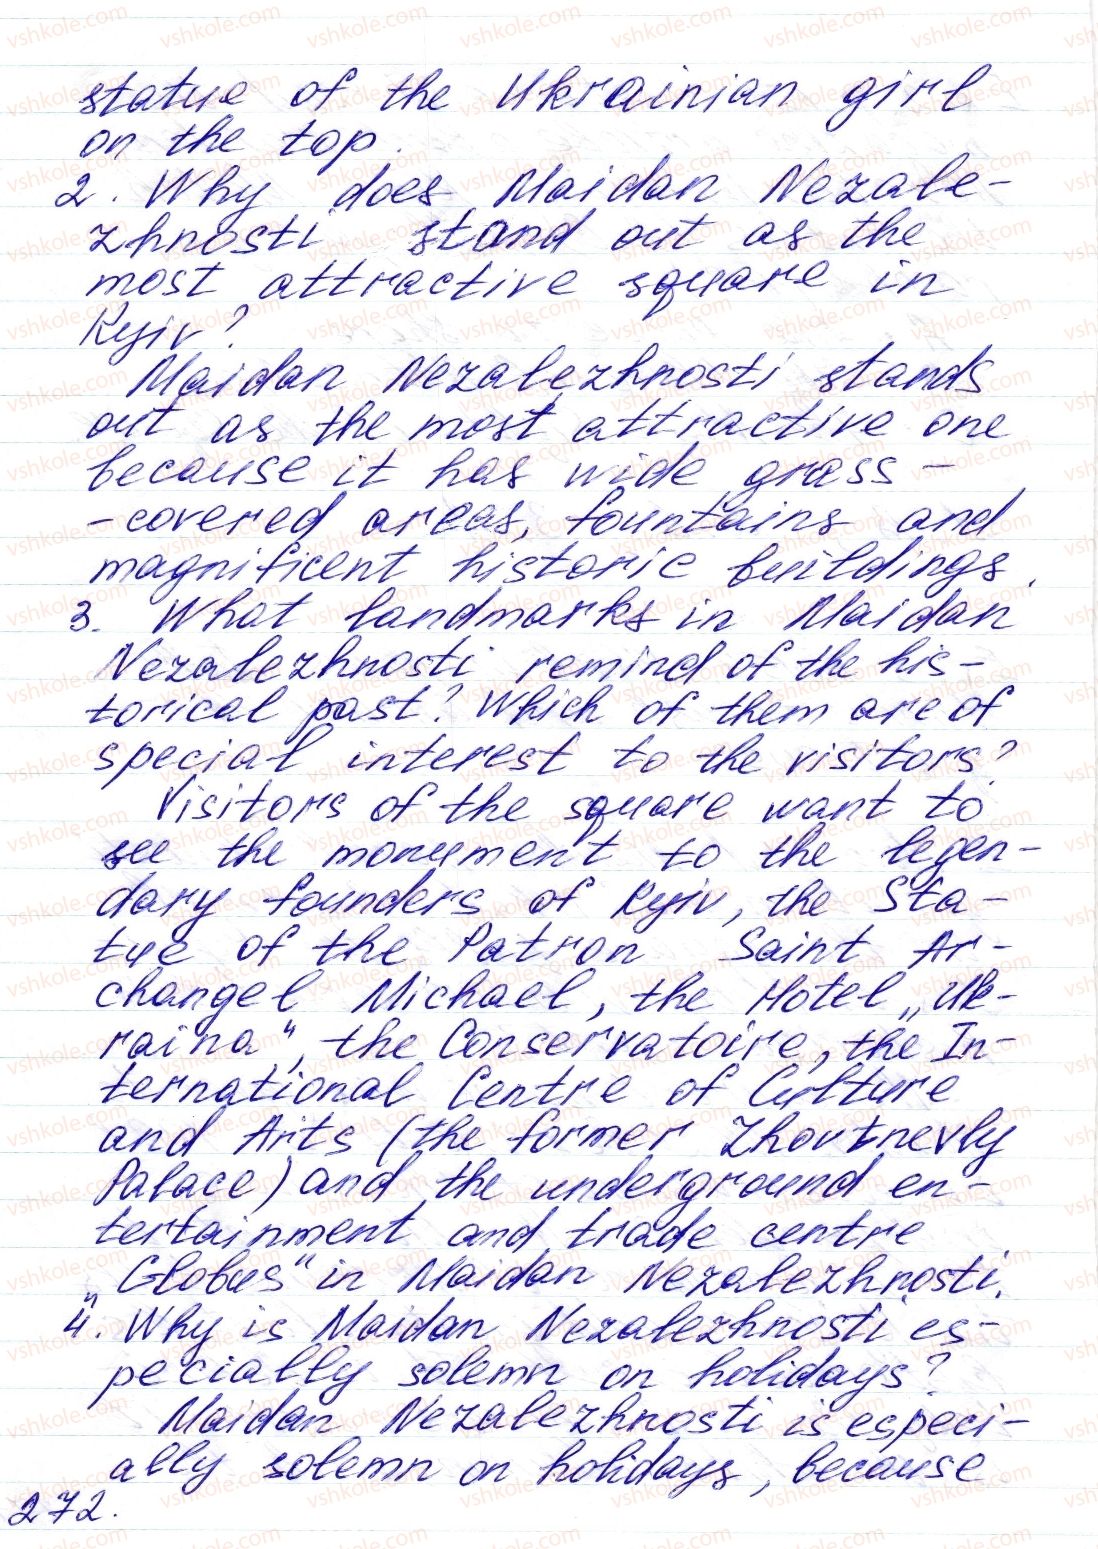 statue of the Ukrainian girl
on the top.
2. Why does Maidan Nezale-
zhnosti stand out as the
most attractive square in
Kyiv?
Maidan Nezalezhnosti stands
out as the most attractive one
because it has wide grass -
-covered areas, fountains and
magnificent historic buildings.
3. What landmarks in Maidan
Nezalezhnosti remind of the his-
torical past? Which of them are of
special interest to the visitors?
Visitors of the square want to
see the monument to the legen-
dary founders of Kyiv, the Sta-
tue of the Patron Saint Ar-
changel Michael, the Hotel „Uk-
raina", the Conservatoire, the In-
ternational Centre of Culture
and Arts (the former Zhovtnevly
Palace) and the underground en-
tertainment and trade centre
„Globus" in Maidan Nezalezhnosti.
4. Why is Maidan Nezalezhnosti es-
pecially solemn on holidays?
Maidan Nezalezhnosti is especi-
ally solemn on holidays, because
272.
vshkole.com